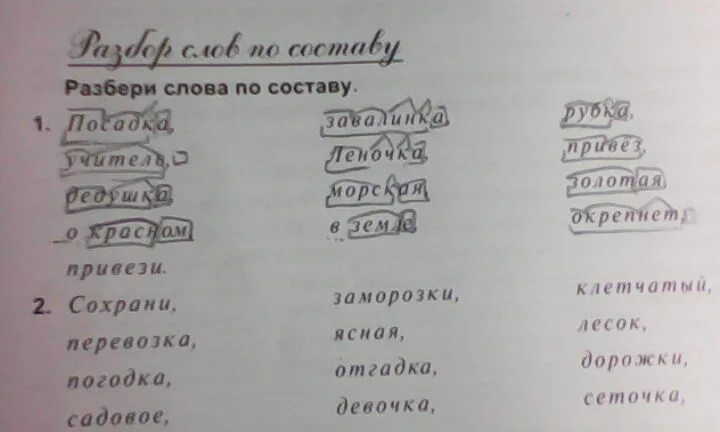 Разбор слов по составу
Разбери слова по составу.
1. Посадка, завалинка, рубка,
учитель, Леночка, привёз,
дедушка, морская, золотая,
о красном, в земле, окрепнет,
привези.
2. Сохрани, заморозки, клетчатый,
перевозка, ясная, лесок,
погодка, отгадка, дорожки,
садовое, девочка, сеточка,